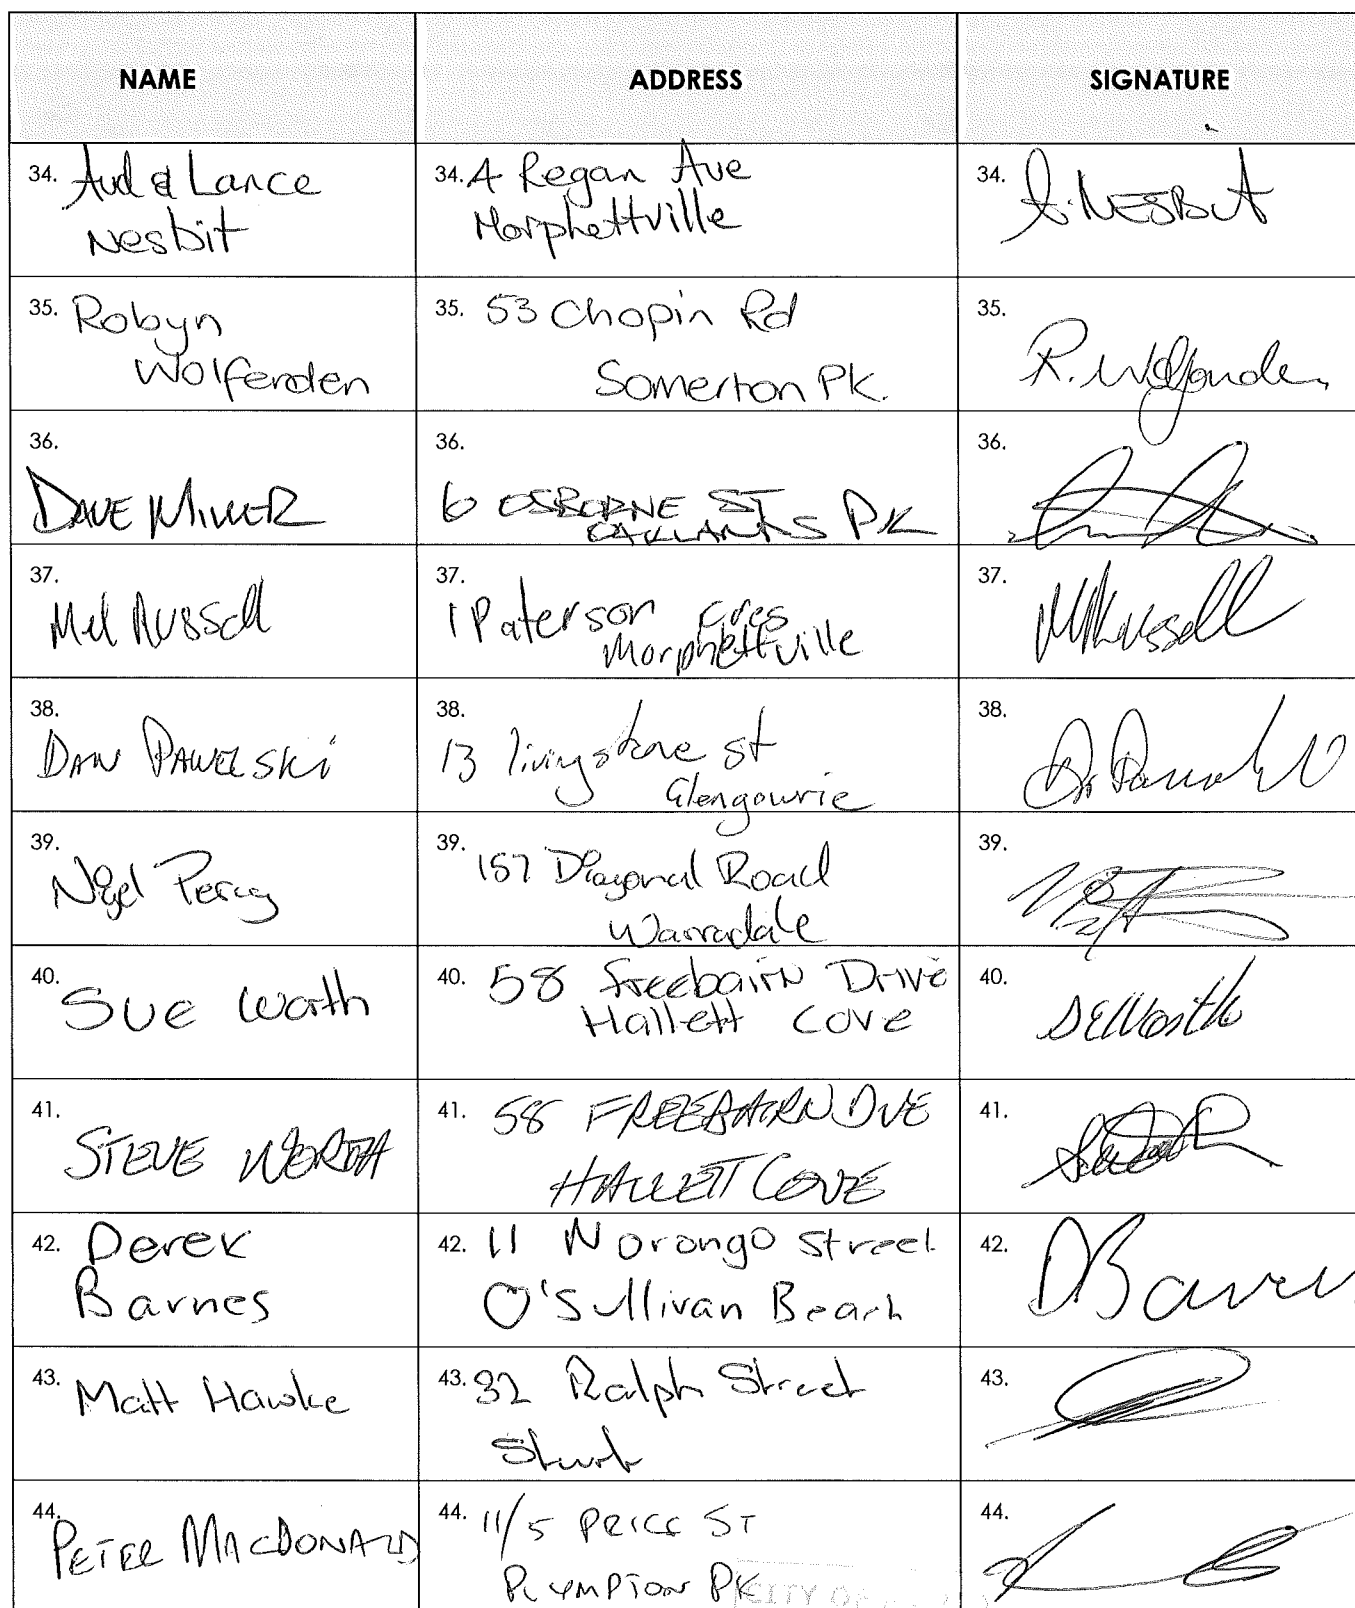 NAME ADDRESS SIGNATURE
34. Aud & Lance
Nesbit
34. 4 Regan Ave
Morphettville
34. A. NESBIT
35. Robyn
Wolfenden
35. 53 Chopin Rd
Somerton PK.
35. R. Wolfenden
36.
DAVE MILLER
36.
6 OSBORNE ST
OAKLANDS PK
36.
37.
Mel Russell
37.
1 Paterson cres
Morphettville
37.
Russell
38.
DAN PAWELSKI
38.
13 livingstone st
Glengowrie
38.
39.
Nigel Percy
39.
157 Diagonal Road
Warradale
39.
40.
Sue Worth
40. 58 Freebairn Drive
Hallett Cove
40.
SEWorth
41.
STEVE WORTH
41. 58 FREEBAIRN DVE
HALLETT COVE
41.
42. Derek
Barnes
42. 11 Norongo Street
O'Sullivan Beach
42. DBarnes
43. Matt Hawke
43. 32 Ralph Street
Sturt
43.
44.
PETER MACDONALD
44. 11/5 PRICE ST
PLYMPTON PK
44.
CITY OF